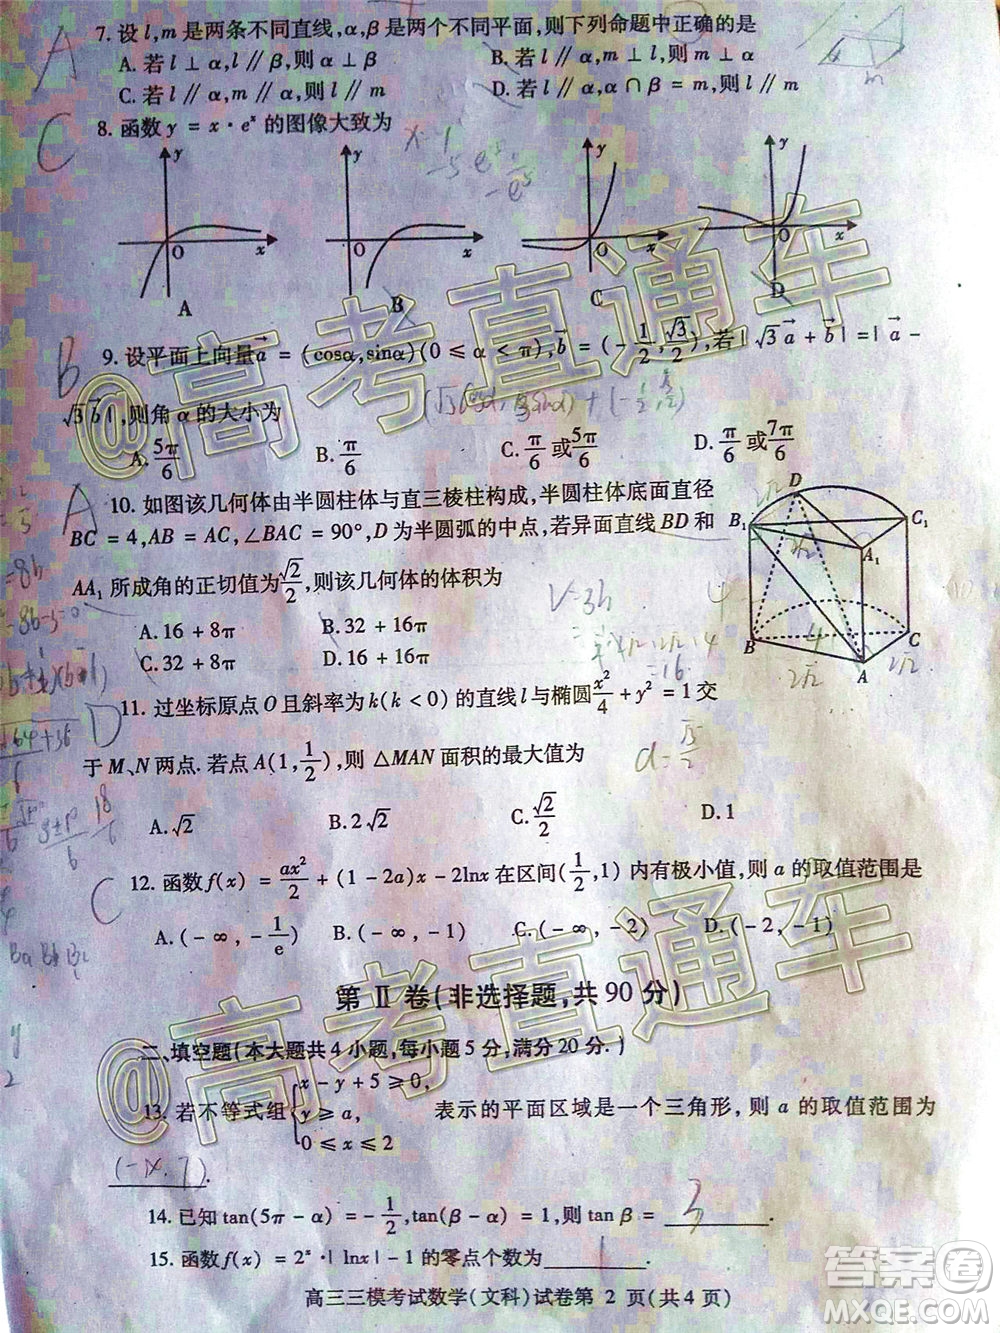 A 7. 设 l,m 是两条不同直线,α,β是两个不同平面,则下列命题中正确的是
A. 若 l ⊥ α,l // β,则 α ⊥ β B. 若 l ⊥ α,m ⊥ l,则 m // α
C. 若 l // α,m // α,则 l // m D. 若 l // α,α ∩ β = m,则 l // m
C 8. 函数 y = x · eˣ 的图像大致为
y y y y
O x O x O x O x
A B C D
B 9. 设平面上向量 a⃗ = (cosα,sinα)(0 ≤ α < π),b⃗ = (-1/2,√3/2),若 | √3 a⃗ + b⃗ | = | a⃗ -
√3 b⃗ |,则角 α 的大小为
A. 5π/6 B. π/6 C. π/6 或 5π/6 D. π/6 或 7π/6
A 10. 如图该几何体由半圆柱体与直三棱柱构成,半圆柱体底面直径
BC = 4,AB = AC,∠BAC = 90°,D 为半圆弧的中点,若异面直线 BD 和
AA₁ 所成角的正切值为 √2/2,则该几何体的体积为
A. 16 + 8π B. 32 + 16π
C. 32 + 8π D. 16 + 16π
D B₁ C₁ A₁ B C A
4 2√2 2√2
D 11. 过坐标原点 O 且斜率为 k(k < 0) 的直线 l 与椭圆 x²/4 + y² = 1 交
于 M、N 两点. 若点 A(1,1/2),则 △MAN 面积的最大值为
A. √2 B. 2√2 C. √2/2 D. 1
C 12. 函数 f(x) = ax²/2 + (1 - 2a)x - 2lnx 在区间(1/2,1) 内有极小值,则 a 的取值范围是
A. (- ∞ , - 1/e) B. (- ∞ , - 1) C. (- ∞ , - 2) D. (- 2, - 1)
第 Ⅱ 卷(非选择题,共 90 分)
二、填空题(本大题共 4 小题,每小题 5 分,满分 20 分. )
13. 若不等式组 { x - y + 5 ≥ 0, y ≥ a, 0 ≤ x ≤ 2 表示的平面区域是一个三角形,则 a 的取值范围为
14. 已知 tan(5π - α) = - 1/2,tan(β - α) = 1,则 tan β = 3 .
15. 函数 f(x) = 2ˣ · | lnx | - 1 的零点个数为 1 .
高三三模考试数学(文科)试卷第 2 页(共 4 页)
@高考直通车
@高考直通车
答案圈
MXQE.COM